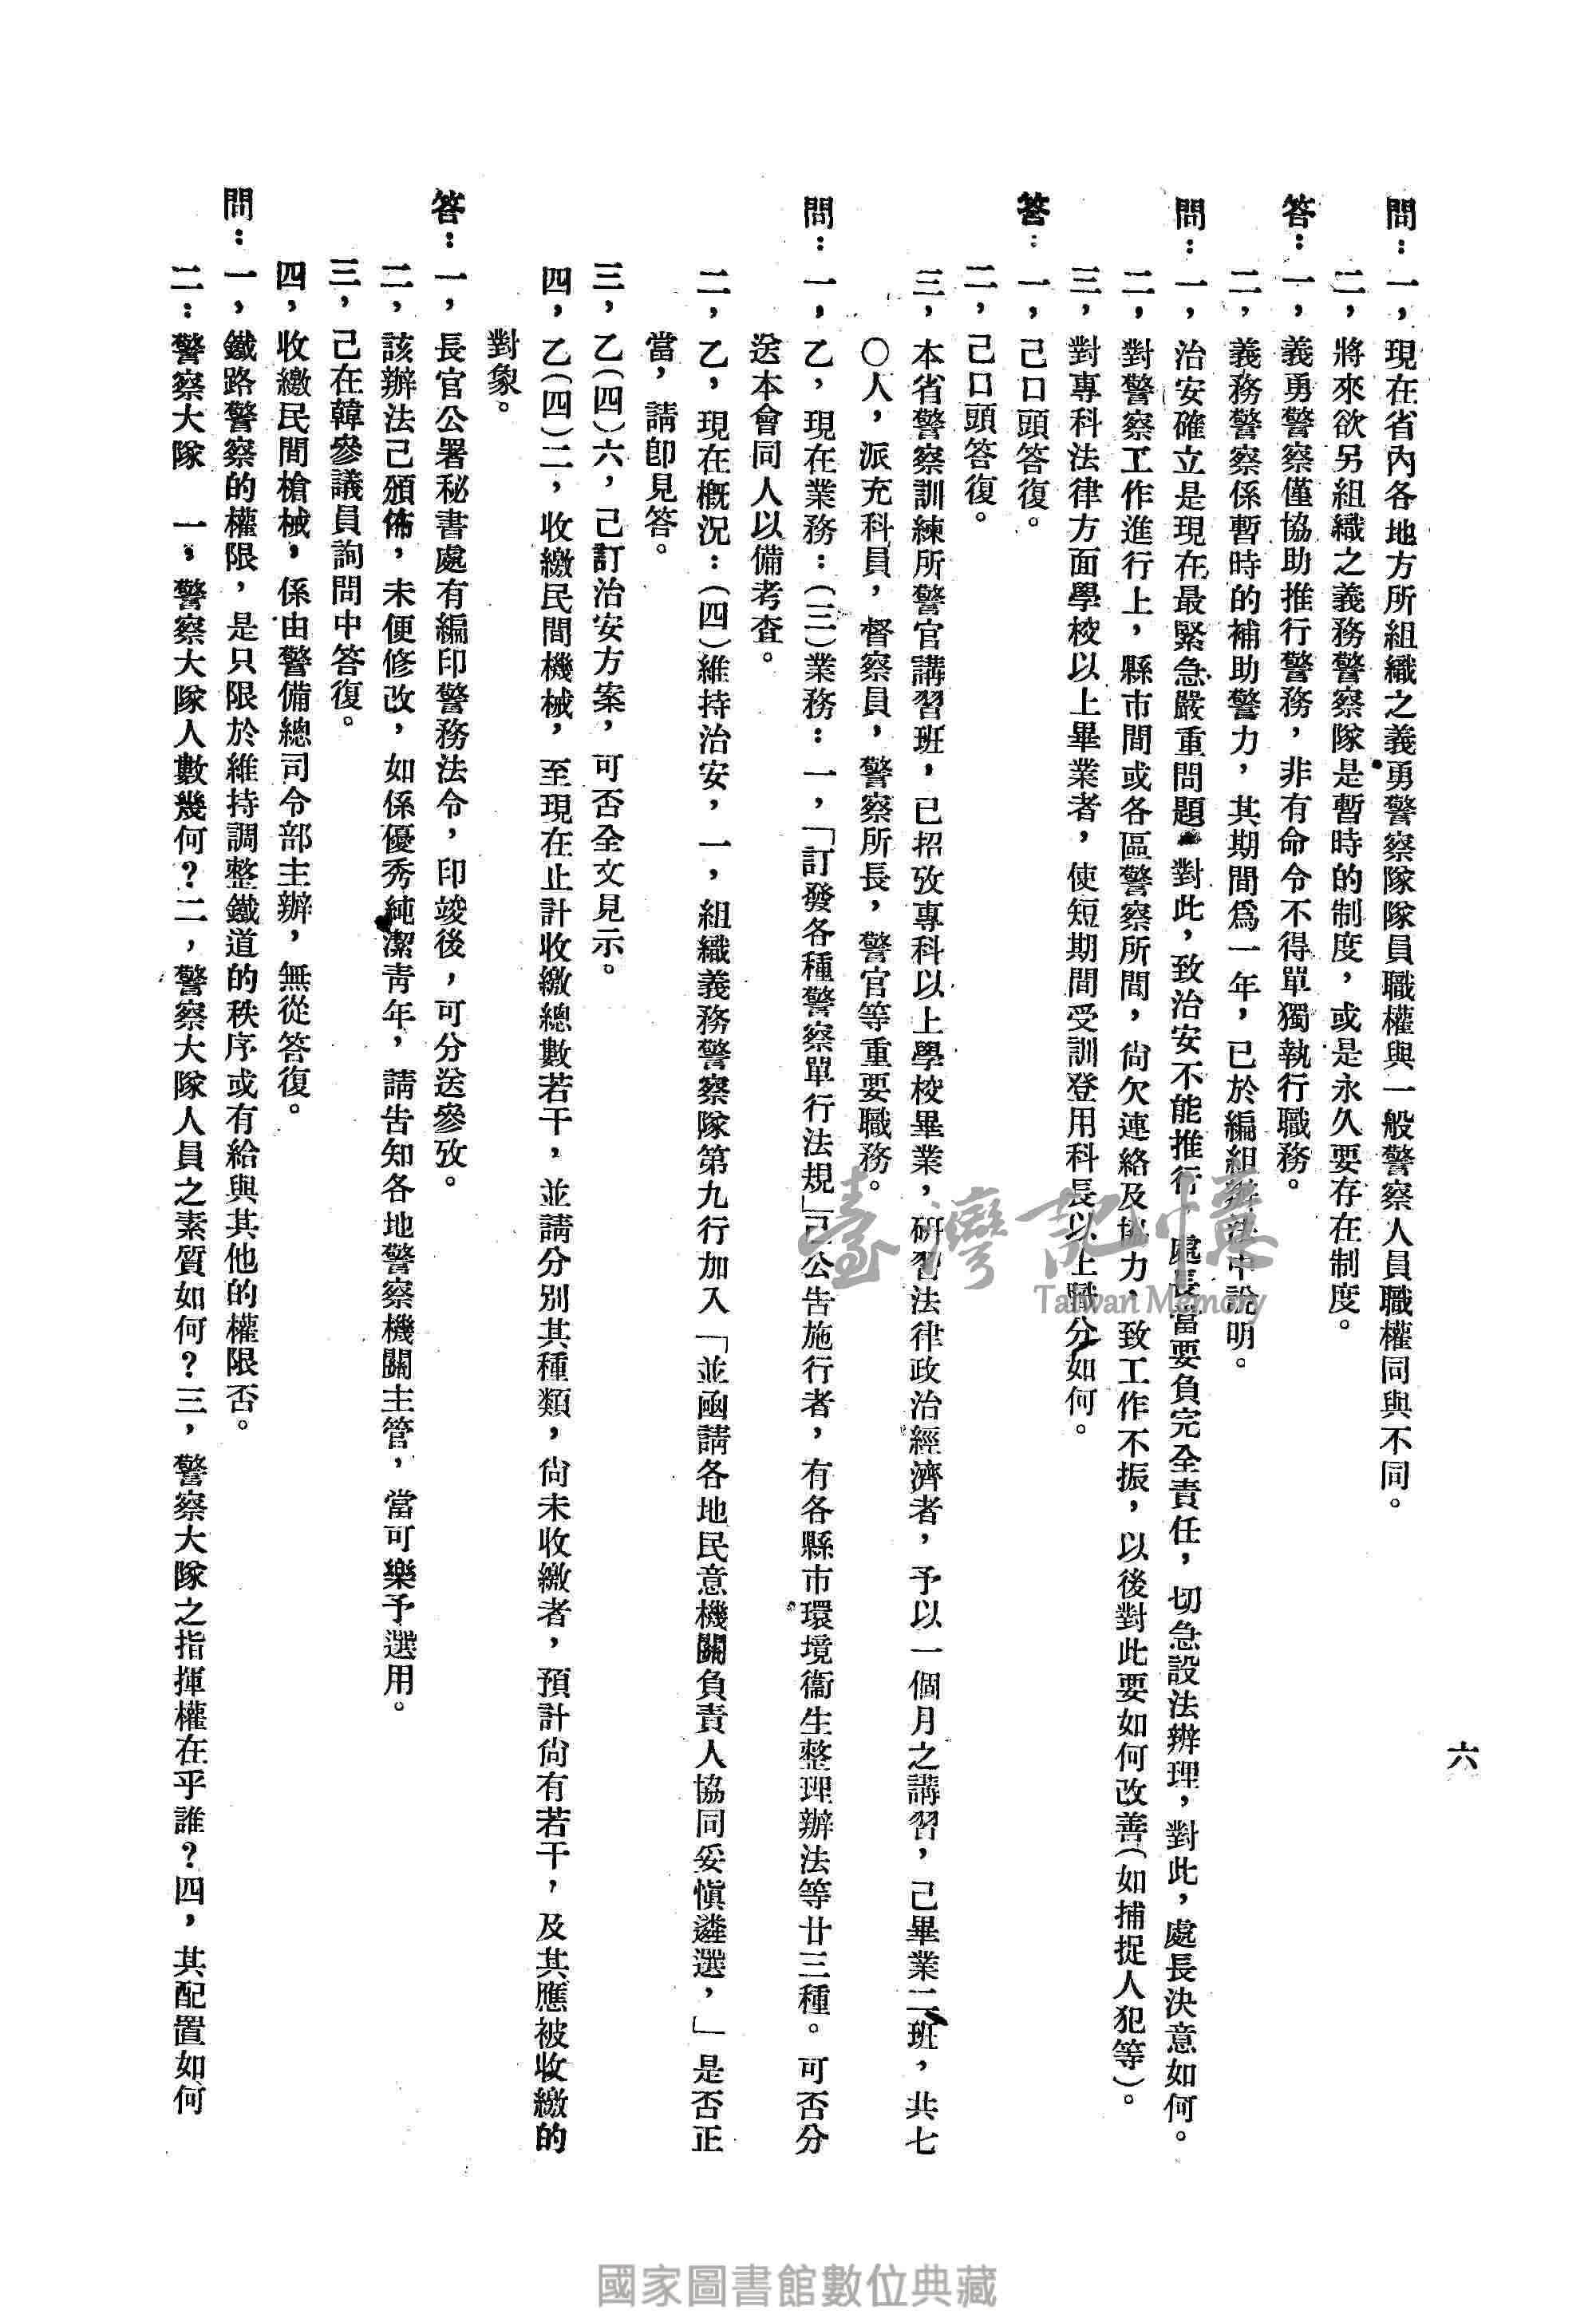 六
問：一，現在省內各地方所組織之義勇警察隊隊員職權與一般警察人員職權同與不同。
二，將來欲另組織之義務警察隊是暫時的制度，或是永久要存在制度。
答：一，義勇警察僅協助推行警務，非有命令不得單獨執行職務。
二，義務警察係暫時的補助警力，其期間爲一年，已於編組辦法中說明。
問：一，治安確立是現在最緊急嚴重問題，對此，致治安不能推行，處長當要負完全責任，切急設法辨理，對此，處長決意如何。
二，對警察工作進行上，縣市間或各區警察所間，尙欠連絡及協力，致工作不振，以後對此要如何改善（如捕捉人犯等）。
三，對專科法律方面學校以上畢業者，使短期間受訓登用科長以上職分如何。
答：一，己口頭答復。
二，己口頭答復。
三，本省警察訓練所警官講習班，已招攷專科以上學校畢業，研習法律政治經濟者，予以一個月之講習，己畢業二班，共七
〇人，派充科員，督察員，警察所長，警官等重要職務。
問：一，乙，現在業務：（三）業務：一，「訂發各種警察單行法規」己公告施行者，有各縣市環境衞生整理辦法等廿三種。可否分
送本會同人以備考查。
二，乙，現在槪況：（四）維持治安，一，組織義務警察隊第九行加入「並函請各地民意機關負責人協同妥愼遴選，」是否正
當，請卽見答。
三，乙（四）六，己訂治安方案，可否全文見示。
四，乙（四）二，收繳民間機械，至現在止計收繳總數若干，並請分別其種類，尙未收繳者，預計尙有若干，及其應被收繳的
對象。
答：一，長官公署秘書處有編印警務法令，印竣後，可分送參攷。
二，該辦法己頒佈，未便修改，如係優秀純潔靑年，請告知各地警察機關主管，當可樂予選用。
三，己在韓參議員詢問中答復。
四，收繳民間槍械，係由警備總司令部主辦，無從答復。
問：一，鐵路警察的權限，是只限於維持調整鐵道的秩序或有給與其他的權限否。
二：警察大隊　一，警察大隊人數幾何？二，警察大隊人員之素質如何？三，警察大隊之指揮權在乎誰？四，其配置如何
臺灣記憶
Taiwan Memory
國家圖書館數位典藏